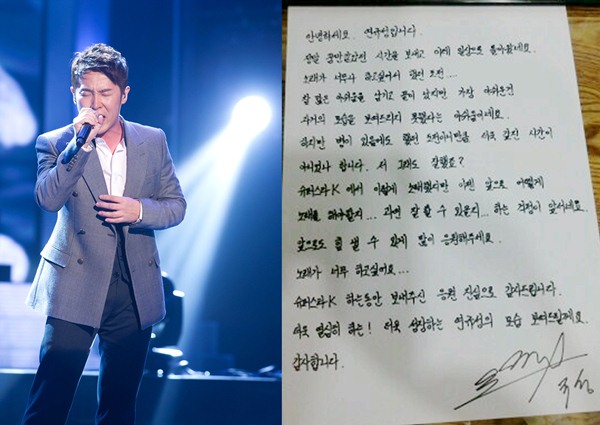 안녕하세요. 연규성입니다.
정말 꿈만같았던 시간을 보내고 이제 일상으로 돌아왔네요.
노래가 너무나 하고싶어서 했던 도전....
참 많은 아쉬움을 남기고 끝이 났지만 가장 아쉬운건
저의 모습을 보여드리지 못했다는 아쉬움이네요.
하지만 병이 있음에도 했던 도전이니만큼 더욱 값진 시간이
아니었나 합니다. 저 그래도 잘했죠?
슈퍼스타K 에서 이렇게 노래했지만 이젠 앞으로 어떻게
노래를 해야할지... 과연 잘 할 수 있을지... 하는 걱정이 앞서네요.
앞으로도 힘 낼 수 있게 많이 응원해주세요.
노래가 너무 하고싶어요...
슈퍼스타K 하는동안 보내주신 응원 진심으로 감사드립니다.
더욱 열심히 하는! 더욱 성장하는 연규성의 모습 보여드릴게요.
감사합니다.
규성